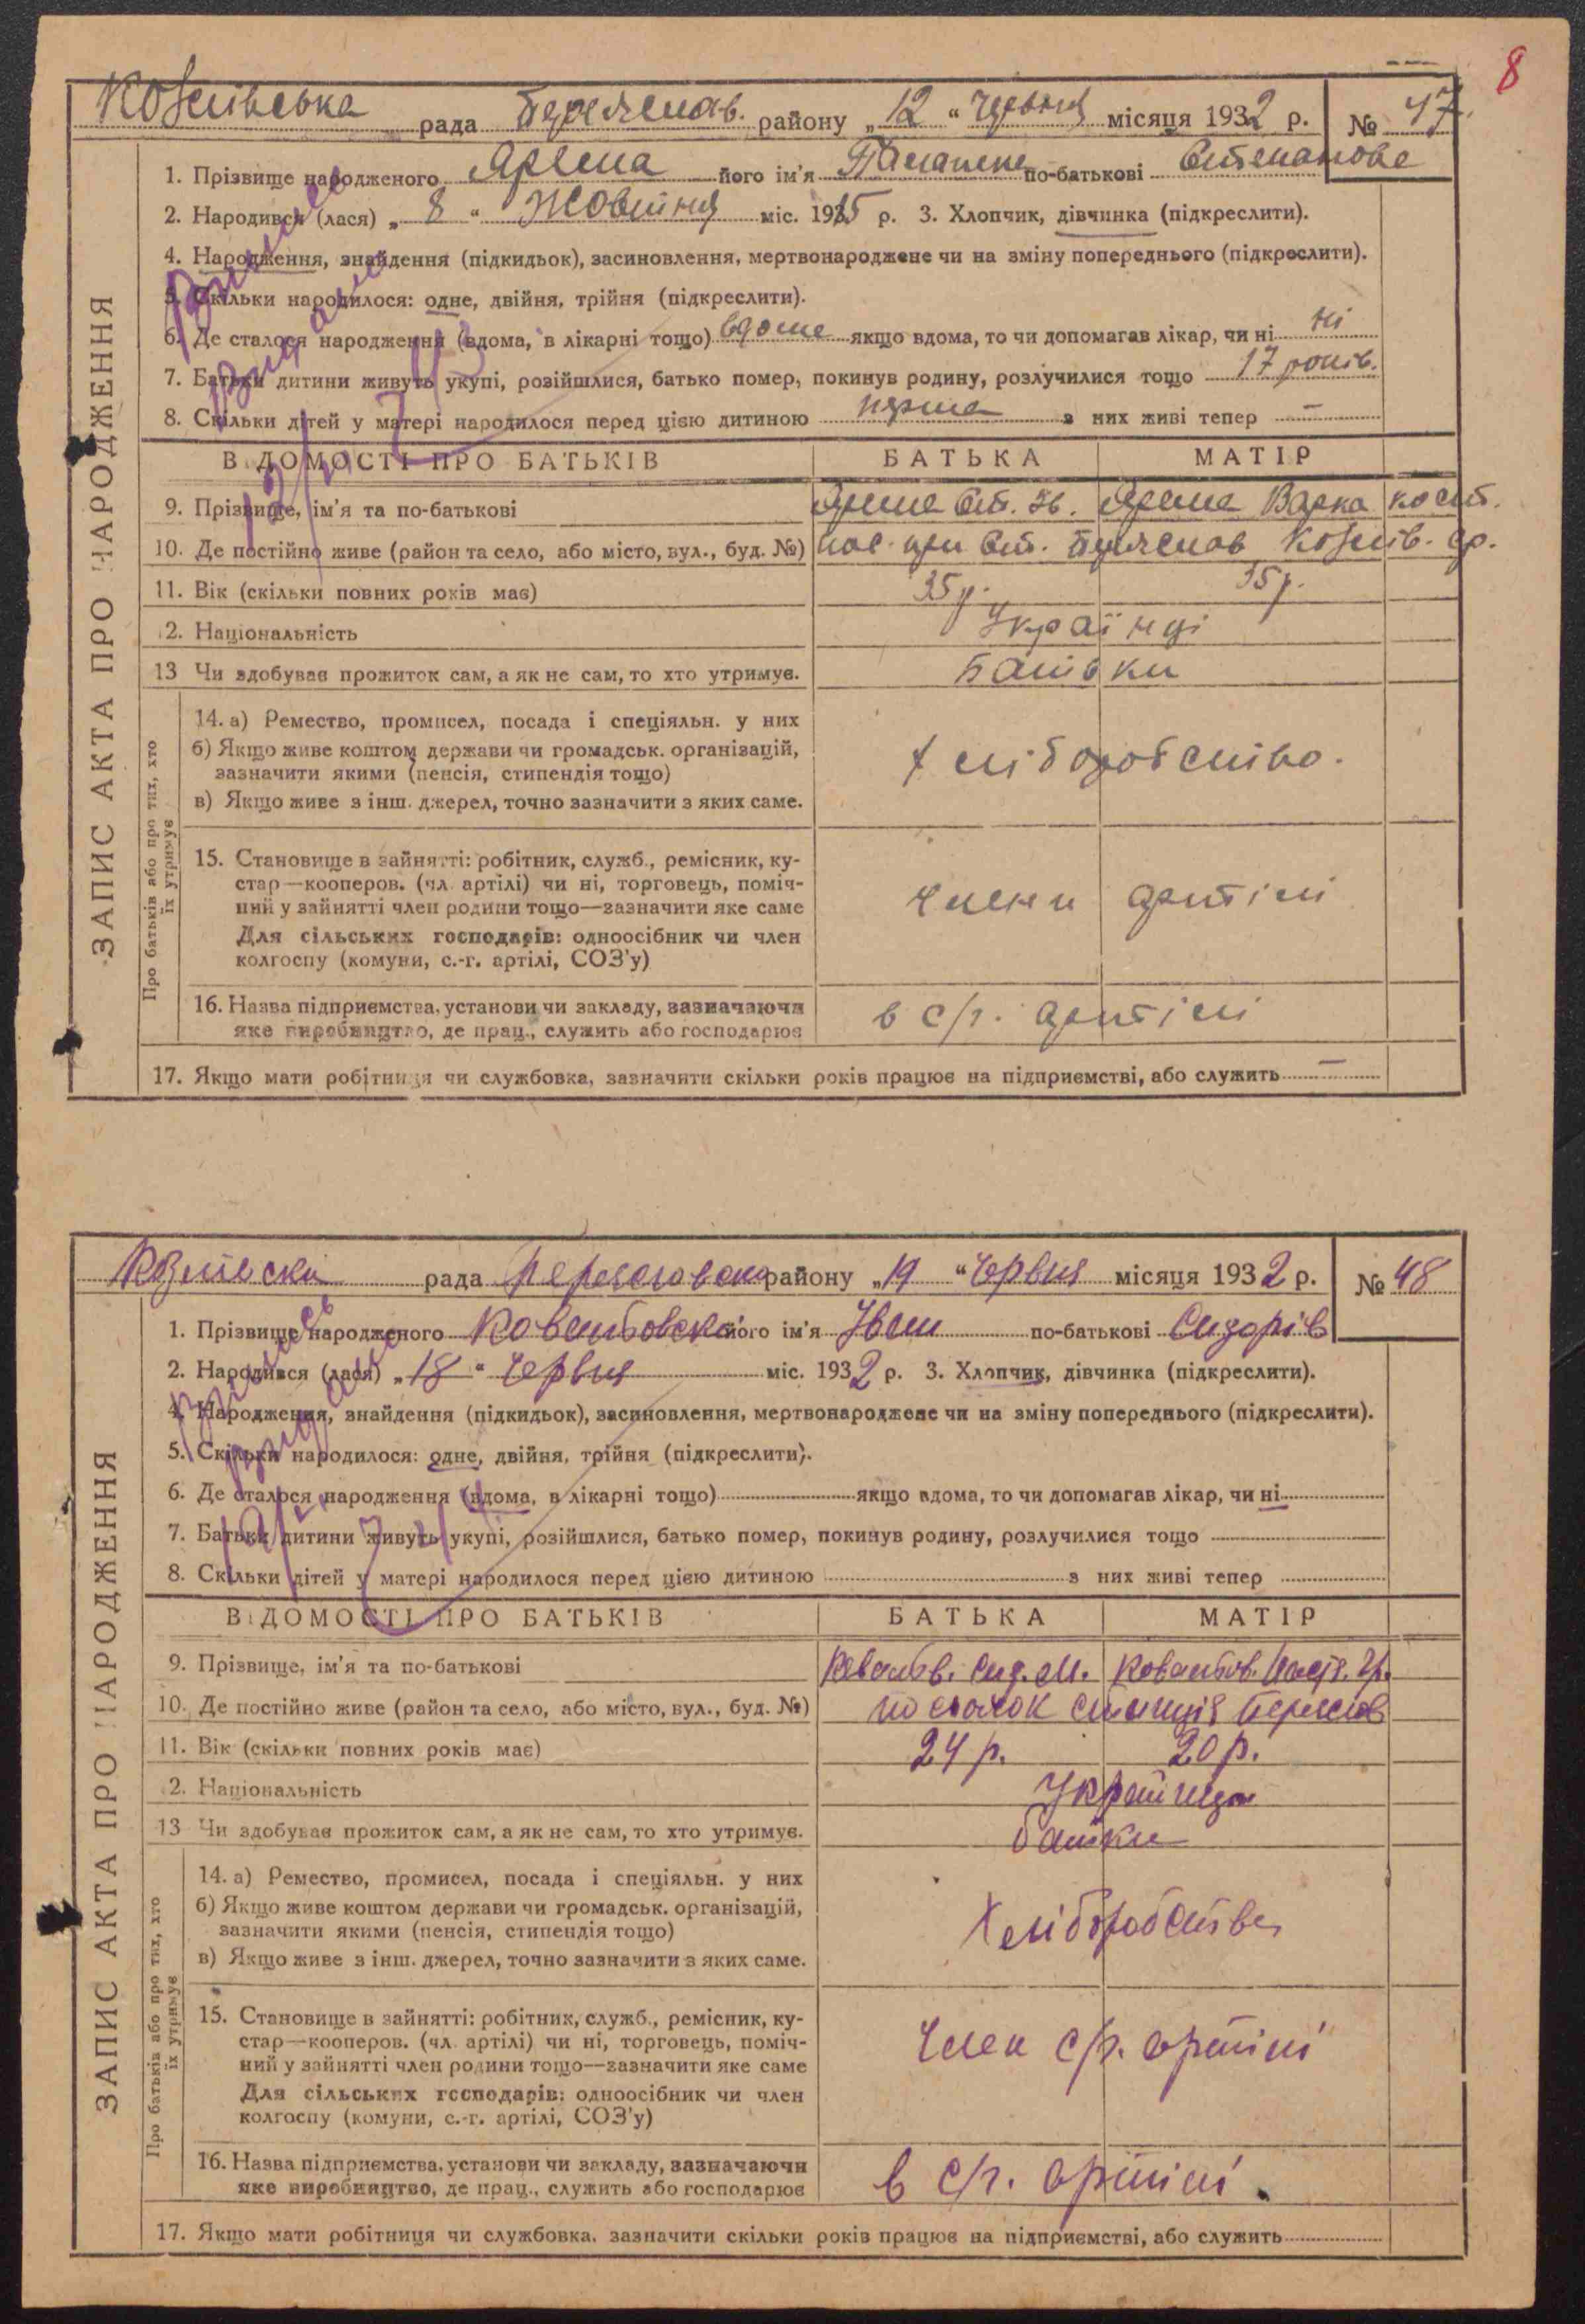 8
Козлівська рада Переяслав. району „12“ Червня місяця 1932 р. № 47
1. Прізвище народженого Ярема його ім'я по-батькові Степанова
2. Народився (лася) „8“ Жовтня міс. 1915 р. 3. Хлопчик, дівчинка (підкреслити).
4. Народження, знайдення (підкидьок), засиновлення, мертвонароджене чи на зміну попереднього (підкреслити).
5. Скільки народилося: одне, двійня, трійня (підкреслити).
6. Де сталося народження (вдома, в лікарні тощо) вдома якщо вдома, то чи допомагав лікар, чи ні ні
7. Батьки дитини живуть укупі, розійшлися, батько помер, покинув родину, розлучилися тощо 17 років.
8. Скільки дітей у матері народилося перед цією дитиною перша з них живі тепер –
ЗАПИС АКТА ПРО НАРОДЖЕННЯ
ВІДОМОСТІ ПРО БАТЬКІВ БАТЬКА МАТІР
9. Прізвище, ім'я та по-батькові Ярема Ст. Ів. Ярема Варка кост.
10. Де постійно живе (район та село, або місто, вул., буд. №) пос. при ст. Переяслав Козлів. ср.
11. Вік (скільки повних років має) 35 р. 35 р.
12. Національність Українці
13 Чи здобуває прожиток сам, а як не сам, то хто утримує. Батьки
Про батьків або про тих, хто їх утримує
14. а) Ремество, промисел, посада і спеціяльн. у них
б) Якщо живе коштом держави чи громадськ. організацій,
зазначити якими (пенсія, стипендія тощо)
в) Якщо живе з інш. джерел, точно зазначити з яких саме.
Хліборобство.
15. Становище в зайнятті: робітник, служб., ремісник, ку-
стар—кооперов. (чл. артілі) чи ні, торговець, поміч-
ний у зайнятті член родини тощо—зазначити яке саме
Для сільських господарів: одноосібник чи член
колгоспу (комуни, с.-г. артілі, СОЗ'у)
члени артілі
16. Назва підприємства, установи чи закладу, зазначаючи
яке виробництво, де прац., служить або господарює
в с/г. артілі
17. Якщо мати робітниця чи службовка, зазначити скільки років працює на підприємстві, або служить –
Козлівська рада Переяславського району „19“ Червня місяця 1932 р. № 48
1. Прізвище народженого його ім'я Іван по-батькові Сидорів
2. Народився (лася) „18“ Червня міс. 1932 р. 3. Хлопчик, дівчинка (підкреслити).
4. Народження, знайдення (підкидьок), засиновлення, мертвонароджене чи на зміну попереднього (підкреслити).
5. Скільки народилося: одне, двійня, трійня (підкреслити).
6. Де сталося народження (вдома, в лікарні тощо) якщо вдома, то чи допомагав лікар, чи ні
7. Батьки дитини живуть укупі, розійшлися, батько помер, покинув родину, розлучилися тощо
8. Скільки дітей у матері народилося перед цією дитиною з них живі тепер
ЗАПИС АКТА ПРО НАРОДЖЕННЯ
ВІДОМОСТІ ПРО БАТЬКІВ БАТЬКА МАТІР
9. Прізвище, ім'я та по-батькові
10. Де постійно живе (район та село, або місто, вул., буд. №) посьолок станція Переяслав
11. Вік (скільки повних років має) 24 р. 20 р.
12. Національність
13 Чи здобуває прожиток сам, а як не сам, то хто утримує. батьки
Про батьків або про тих, хто їх утримує
14. а) Ремество, промисел, посада і спеціяльн. у них
б) Якщо живе коштом держави чи громадськ. організацій,
зазначити якими (пенсія, стипендія тощо)
в) Якщо живе з інш. джерел, точно зазначити з яких саме.
Хліборобство
15. Становище в зайнятті: робітник, служб., ремісник, ку-
стар—кооперов. (чл. артілі) чи ні, торговець, поміч-
ний у зайнятті член родини тощо—зазначити яке саме
Для сільських господарів: одноосібник чи член
колгоспу (комуни, с.-г. артілі, СОЗ'у)
Член с/г. артілі
16. Назва підприємства, установи чи закладу, зазначаючи
яке виробництво, де прац., служить або господарює
в с/г. артілі.
17. Якщо мати робітниця чи службовка, зазначити скільки років працює на підприємстві, або служить